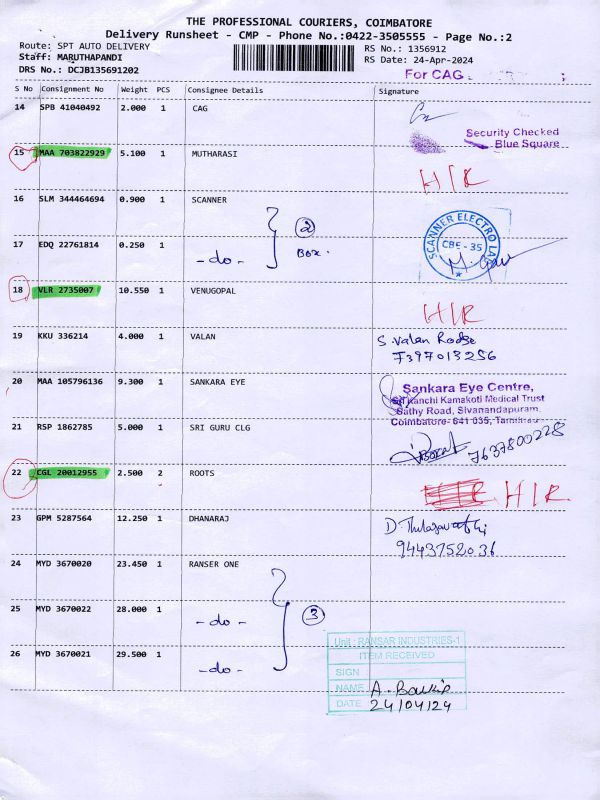 THE PROFESSIONAL COURIERS, COIMBATORE
Delivery Runsheet - CMP - Phone No.:0422-3505555 - Page No.:2
Route: SPT AUTO DELIVERY
Staff: MARUTHAPANDI
DRS No.: DCJB135691202
RS No.: 1356912
RS Date: 24-Apr-2024
For CAG
S No Consignment No Weight PCS Consignee Details Signature
14 SPB 41040492 2.000 1 CAG
Security Checked
Blue Square
15 MAA 703822929 5.100 1 MUTHARASI
HIR
16 SLM 344464694 0.900 1 SCANNER
2
Box.
SCANNER ELECTRO LAB
CBE - 35
17 EDQ 22761814 0.250 1 - do -
18 VLR 2735007 10.550 1 VENUGOPAL
HIR
19 KKU 336214 4.000 1 VALAN
S. Valan Rodse
7397013256
20 MAA 105796136 9.300 1 SANKARA EYE
Sankara Eye Centre,
Sri Kanchi Kamakoti Medical Trust
Sathy Road, Sivanandapuram,
Coimbatore- 641 035, Tamilnadu
21 RSP 1862785 5.000 1 SRI GURU CLG
7637800228
22 CGL 20012955 2.500 2 ROOTS
HIR
23 GPM 5287564 12.250 1 DHANARAJ
9443752036
24 MYD 3670020 23.450 1 RANSER ONE
25 MYD 3670022 28.000 1 - do -
3
Unit : RANSAR INDUSTRIES-1
ITEM RECEIVED
26 MYD 3670021 29.500 1 - do -
SIGN
NAME A.
DATE 24/04/24